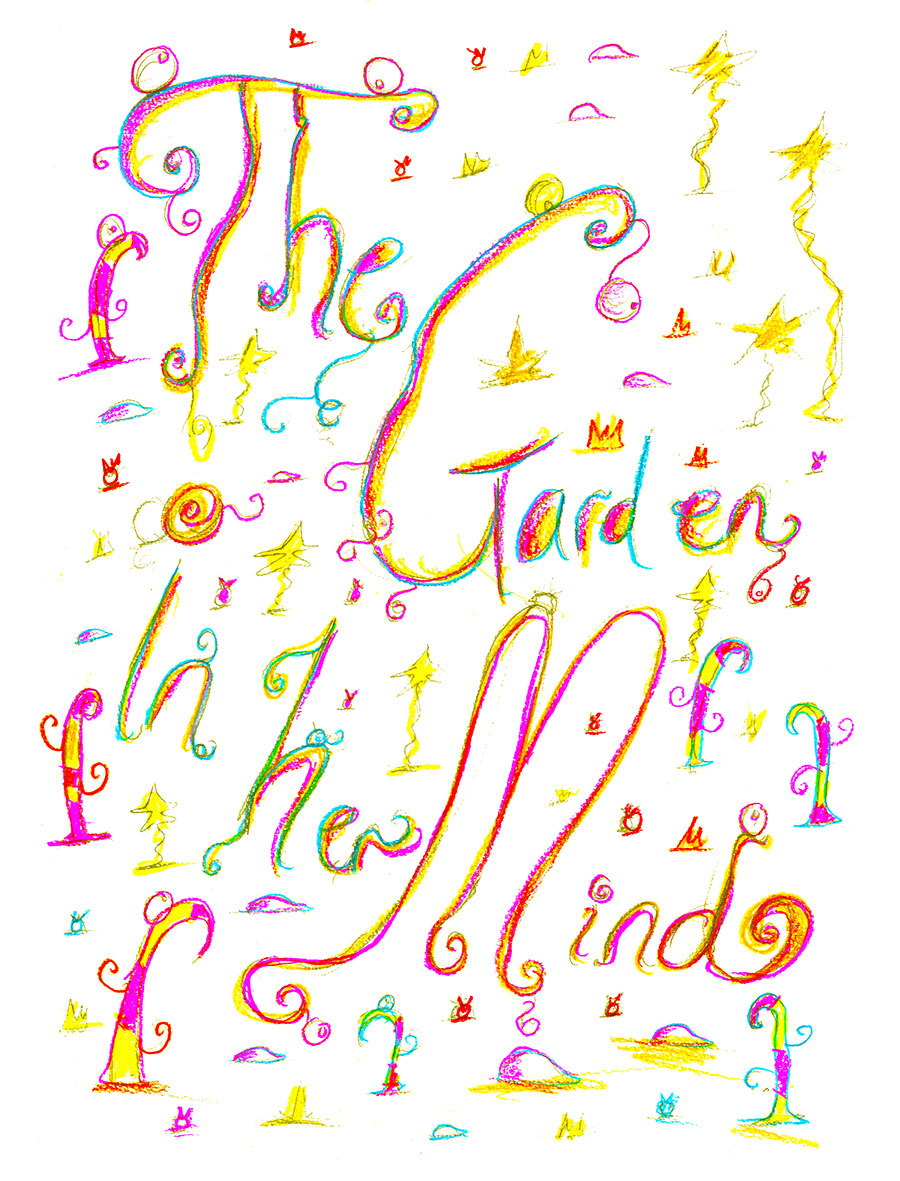 The
Garden
in The
Mind